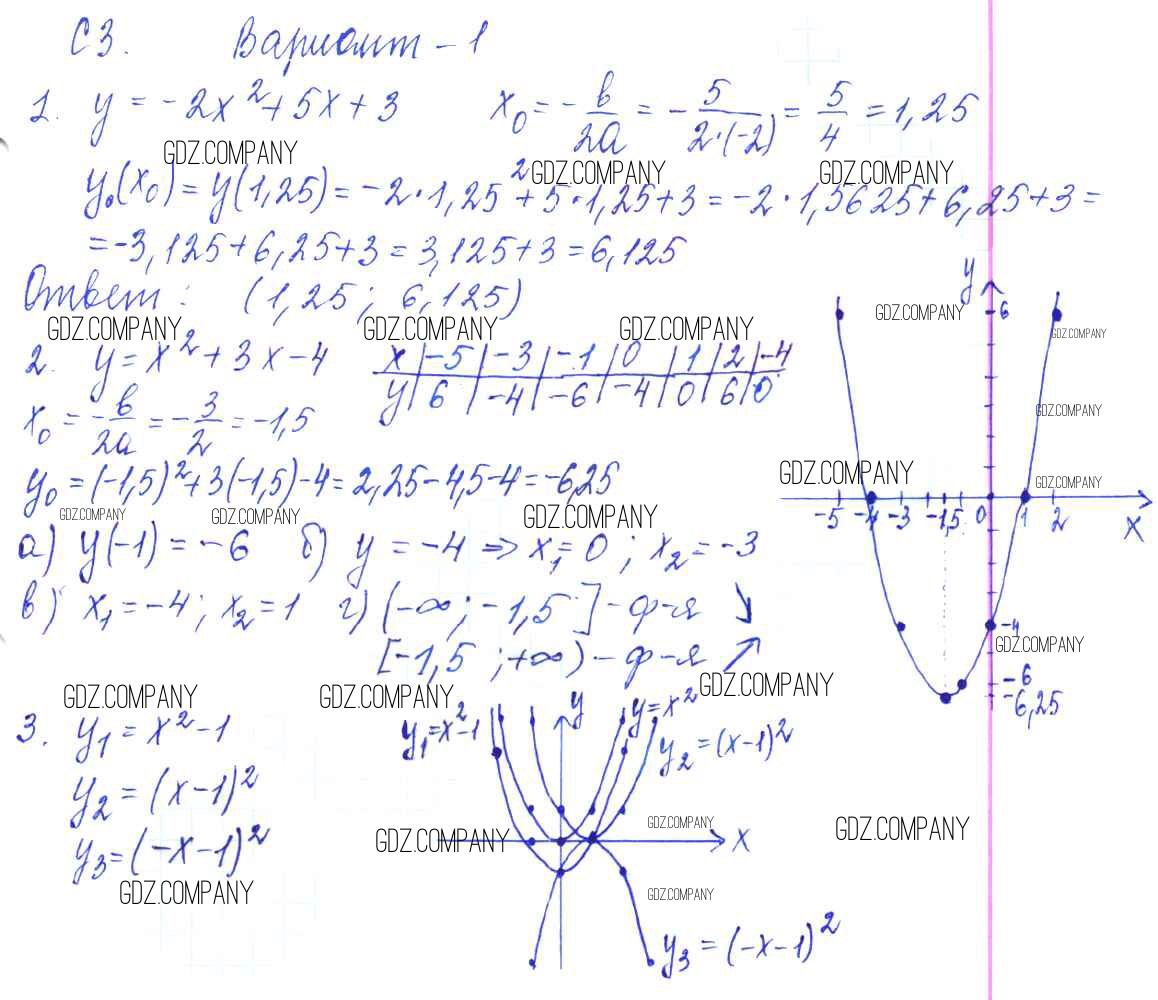 С3. Вариант - 1
1. y = -2x² + 5x + 3 x₀ = - в/2а = - 5/(2·(-2)) = 5/4 = 1,25
GDZ.COMPANY
GDZ.COMPANY GDZ.COMPANY
y₀(x₀) = y(1,25) = -2·1,25² + 5·1,25 + 3 = -2·1,5625 + 6,25 + 3 =
= -3,125 + 6,25 + 3 = 3,125 + 3 = 6,125
Ответ: (1,25; 6,125)
GDZ.COMPANY GDZ.COMPANY GDZ.COMPANY
2. y = x² + 3x - 4
x | -5 | -3 | -1 | 0 | 1 | 2 | -4
y | 6 | -4 | -6 | -4 | 0 | 6 | 0
x₀ = - в/2а = - 3/2 = -1,5
y₀ = (-1,5)² + 3(-1,5) - 4 = 2,25 - 4,5 - 4 = -6,25
GDZ.COMPANY GDZ.COMPANY GDZ.COMPANY
а) y(-1) = -6 б) y = -4 ⇒ x₁ = 0; x₂ = -3
в) x₁ = -4; x₂ = 1 г) (-∞; -1,5] - ф-я ↘
[-1,5; +∞) - ф-я ↗
y
6
GDZ.COMPANY
GDZ.COMPANY
GDZ.COMPANY
GDZ.COMPANY GDZ.COMPANY
-5 -4 -3 -1,5 0 1 2 x
-4
GDZ.COMPANY
-6
-6,25
GDZ.COMPANY GDZ.COMPANY GDZ.COMPANY
3. y₁ = x² - 1
y₂ = (x - 1)²
y₃ = (-x - 1)²
GDZ.COMPANY
y₁ = x² - 1 y y = x²
y₂ = (x - 1)²
GDZ.COMPANY GDZ.COMPANY
GDZ.COMPANY x
GDZ.COMPANY
y₃ = (-x - 1)²